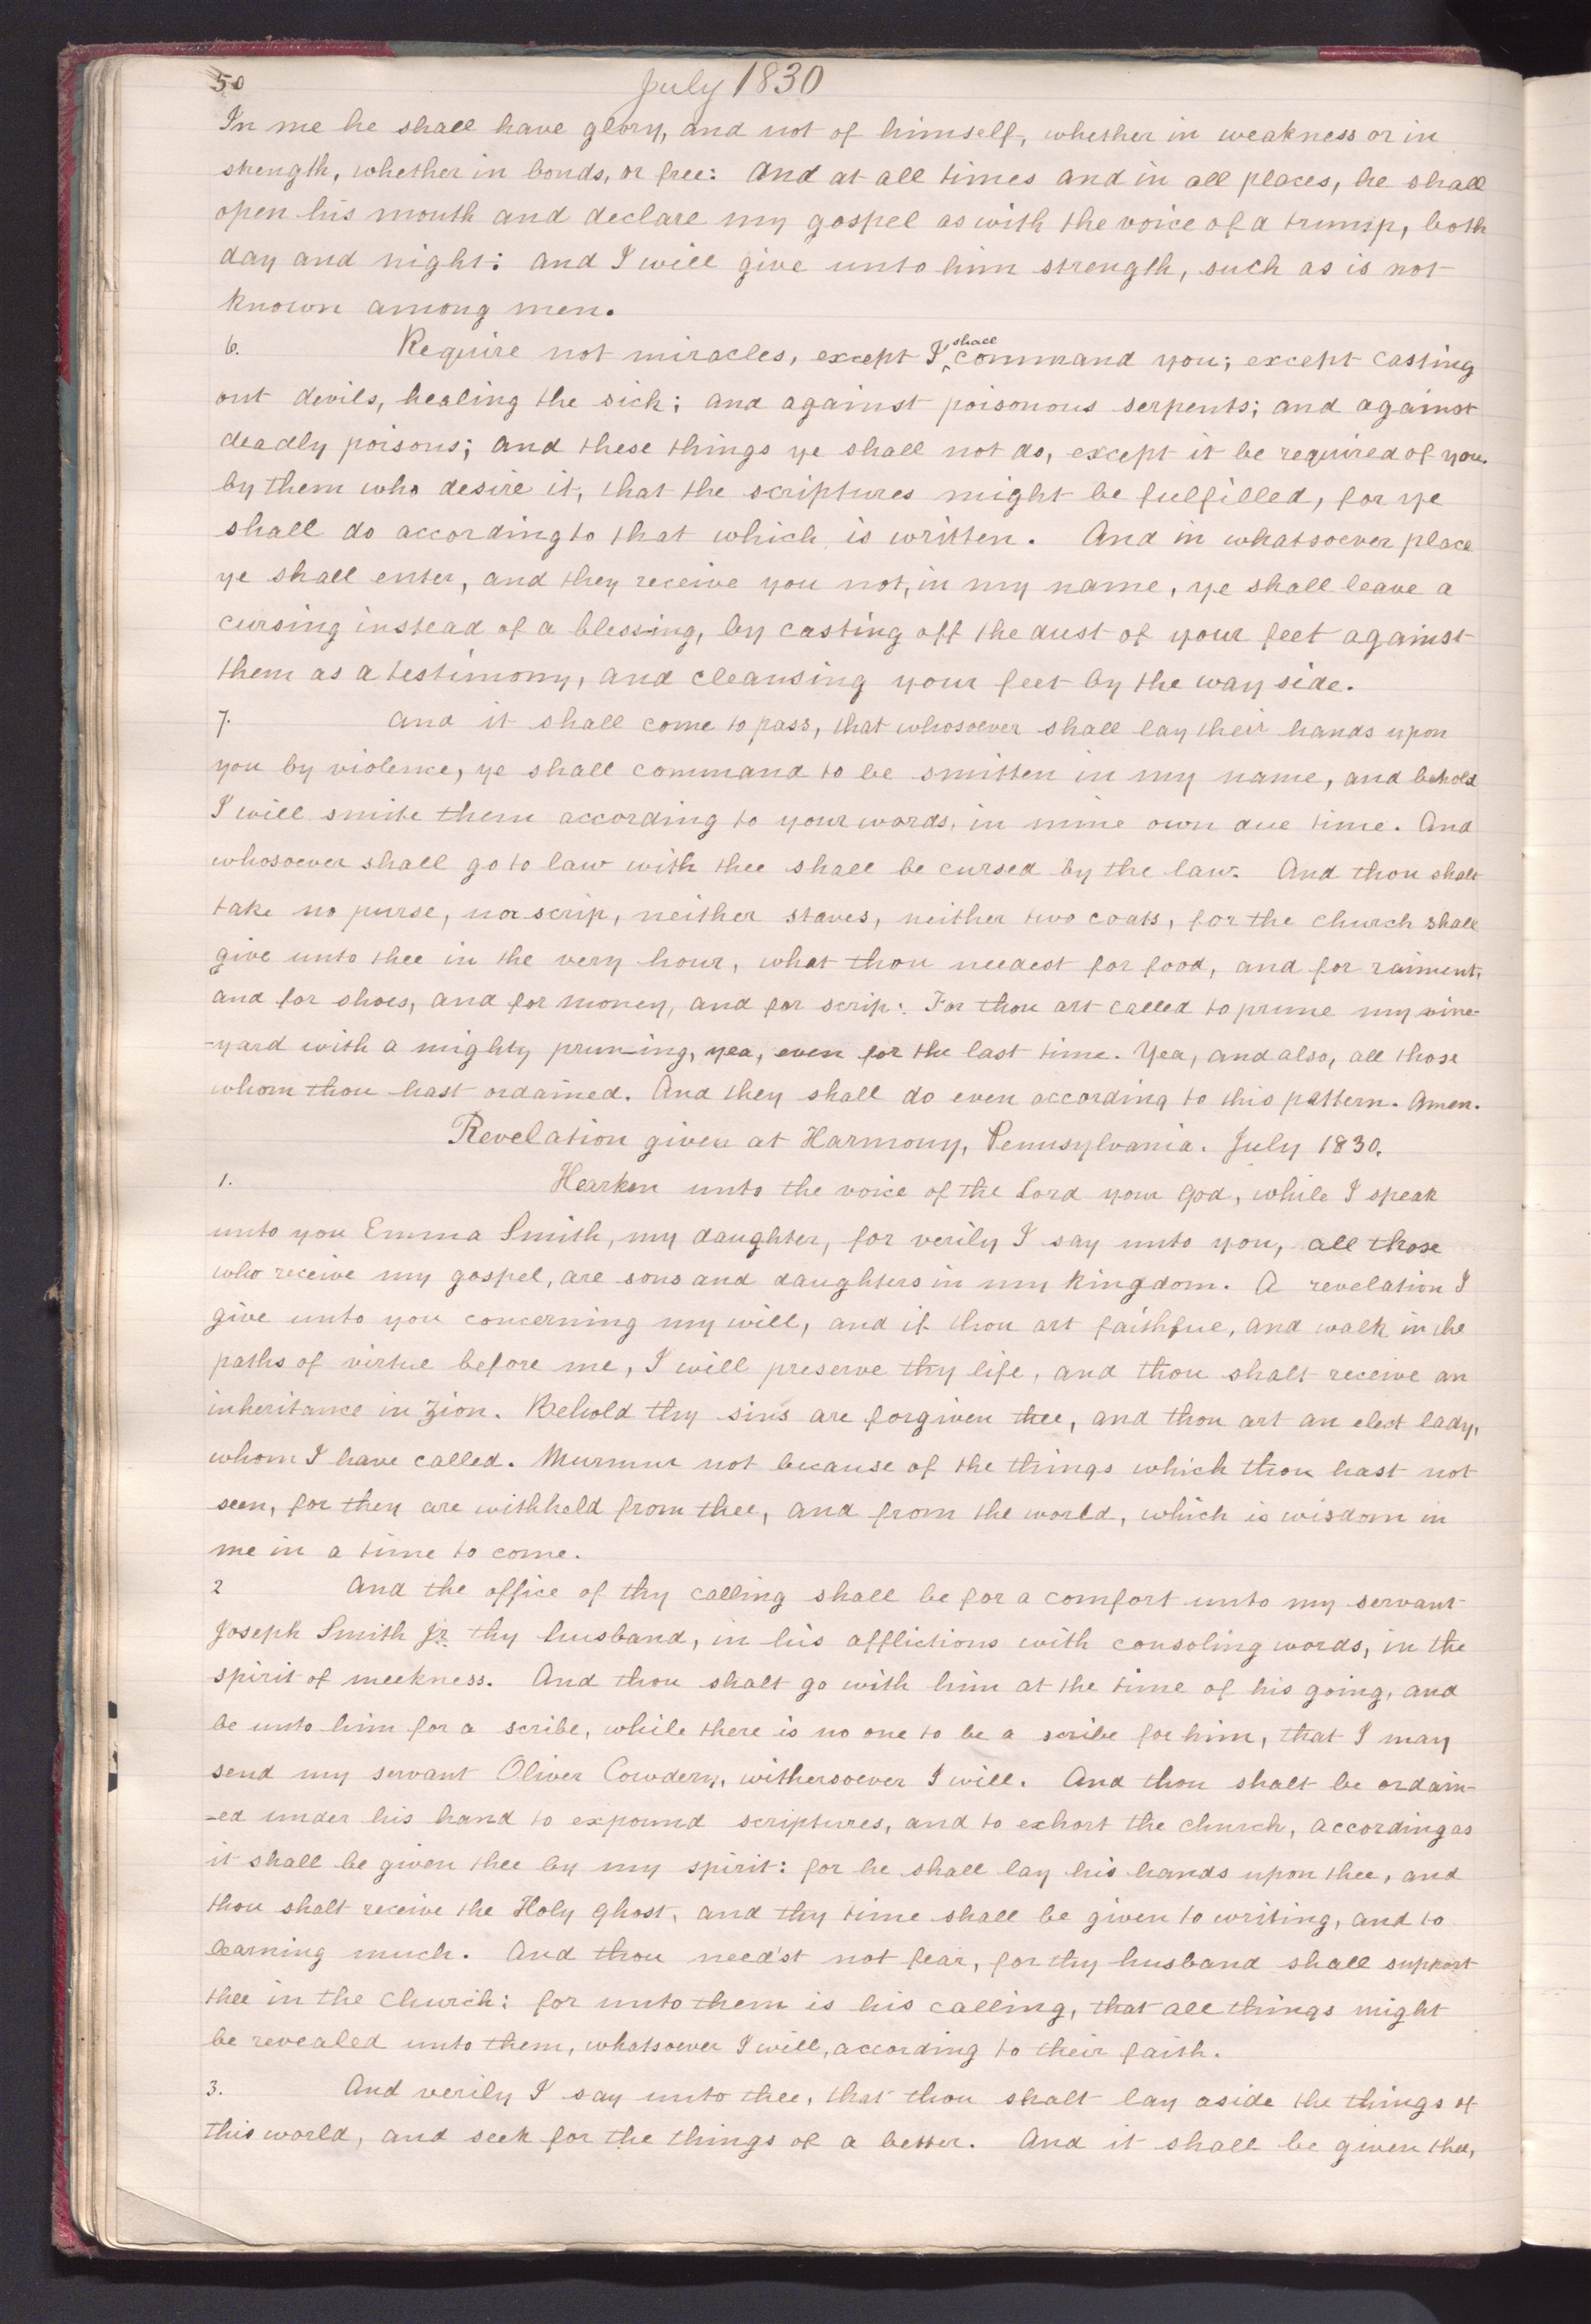 50
July 1830
In me he shall have glory, and not of himself, whether in weakness or in
strength, whether in bonds, or free: And at all times and in all places, he shall
open his mouth and declare my gospel as with the voice of a trump, both
day and night: and I will give unto him strength, such as is not
known among men.
6. Require not miracles, except I ^shall command you; except casting
out devils, healing the sick; and against poisonous serpents; and against
deadly poisons; and these things ye shall not do, except it be required of you.
by them who desire it, that the scriptures might be fulfilled, for ye
shall do according to that which is written. And in whatsoever place
ye shall enter, and they receive you not, in my name, ye shall leave a
cursing instead of a blessing, by casting off the dust of your feet against
them as a testimony, and cleansing your feet by the way side.
7. And it shall come to pass, that whosoever shall lay their hands upon
you by violence, ye shall command to be smitten in my name, and behold
I will smite them according to your words, in mine own due time. And
whosoever shall go to law with thee shall be cursed by the law. And thou shalt
take no purse, nor scrip, neither staves, neither two coats, for the church shall
give unto thee in the very hour, what thou needest for food, and for raiment,
and for shoes, and for money, and for scrip: For thou art called to prune my vine-
-yard with a mighty pruning, yea, even for the last time. Yea, and also, all those
whom thou hast ordained. And they shall do even according to this pattern. Amen.
Revelation given at Harmony, Pennsylvania. July 1830.
1. Hearken unto the voice of the Lord your God, while I speak
unto you Emma Smith, my daughter, for verily I say unto you, all those
who receive my gospel, are sons and daughters in my kingdom. A revelation I
give unto you concerning my will, and if thou art faithful, and walk in the
paths of virtue before me, I will preserve thy life, and thou shalt receive an
inheritance in Zion. Behold thy sins are forgiven thee, and thou art an elect lady,
whom I have called. Murmur not because of the things which thou hast not
seen, for they are withheld from thee, and from the world, which is wisdom in
me in a time to come.
2 And the office of thy calling shall be for a comfort unto my servant
Joseph Smith Jr. thy husband, in his afflictions with consoling words, in the
spirit of meekness. And thou shalt go with him at the time of his going, and
be unto him for a scribe, while there is no one to be a scribe for him, that I may
send my servant Oliver Cowdery, withersoever I will. And thou shalt be ordain-
-ed under his hand to expound scriptures, and to exhort the church, according as
it shall be given thee by my spirit: for he shall lay his hands upon thee, and
thou shalt receive the Holy Ghost, and thy time shall be given to writing, and to
learning much. And thou need'st not fear, for thy husband shall support
thee in the Church: for unto them is his calling, that all things might
be revealed unto them, whatsoever I will, according to their faith.
3. And verily I say unto thee, that thou shalt lay aside the things of
this world, and seek for the things of a better. And it shall be given thee,